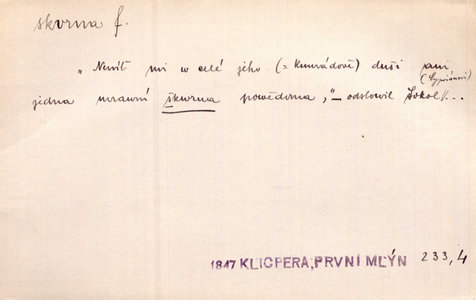 skvrna f.
„Nenít mi w celé jeho (= Kunrádově) duši ani
(Cypriánovi)
jedna mrawní škwrna powědoma,"— odslowil Sokol/...
1847 KLICPERA, PRVNÍ MLÝN 233,4